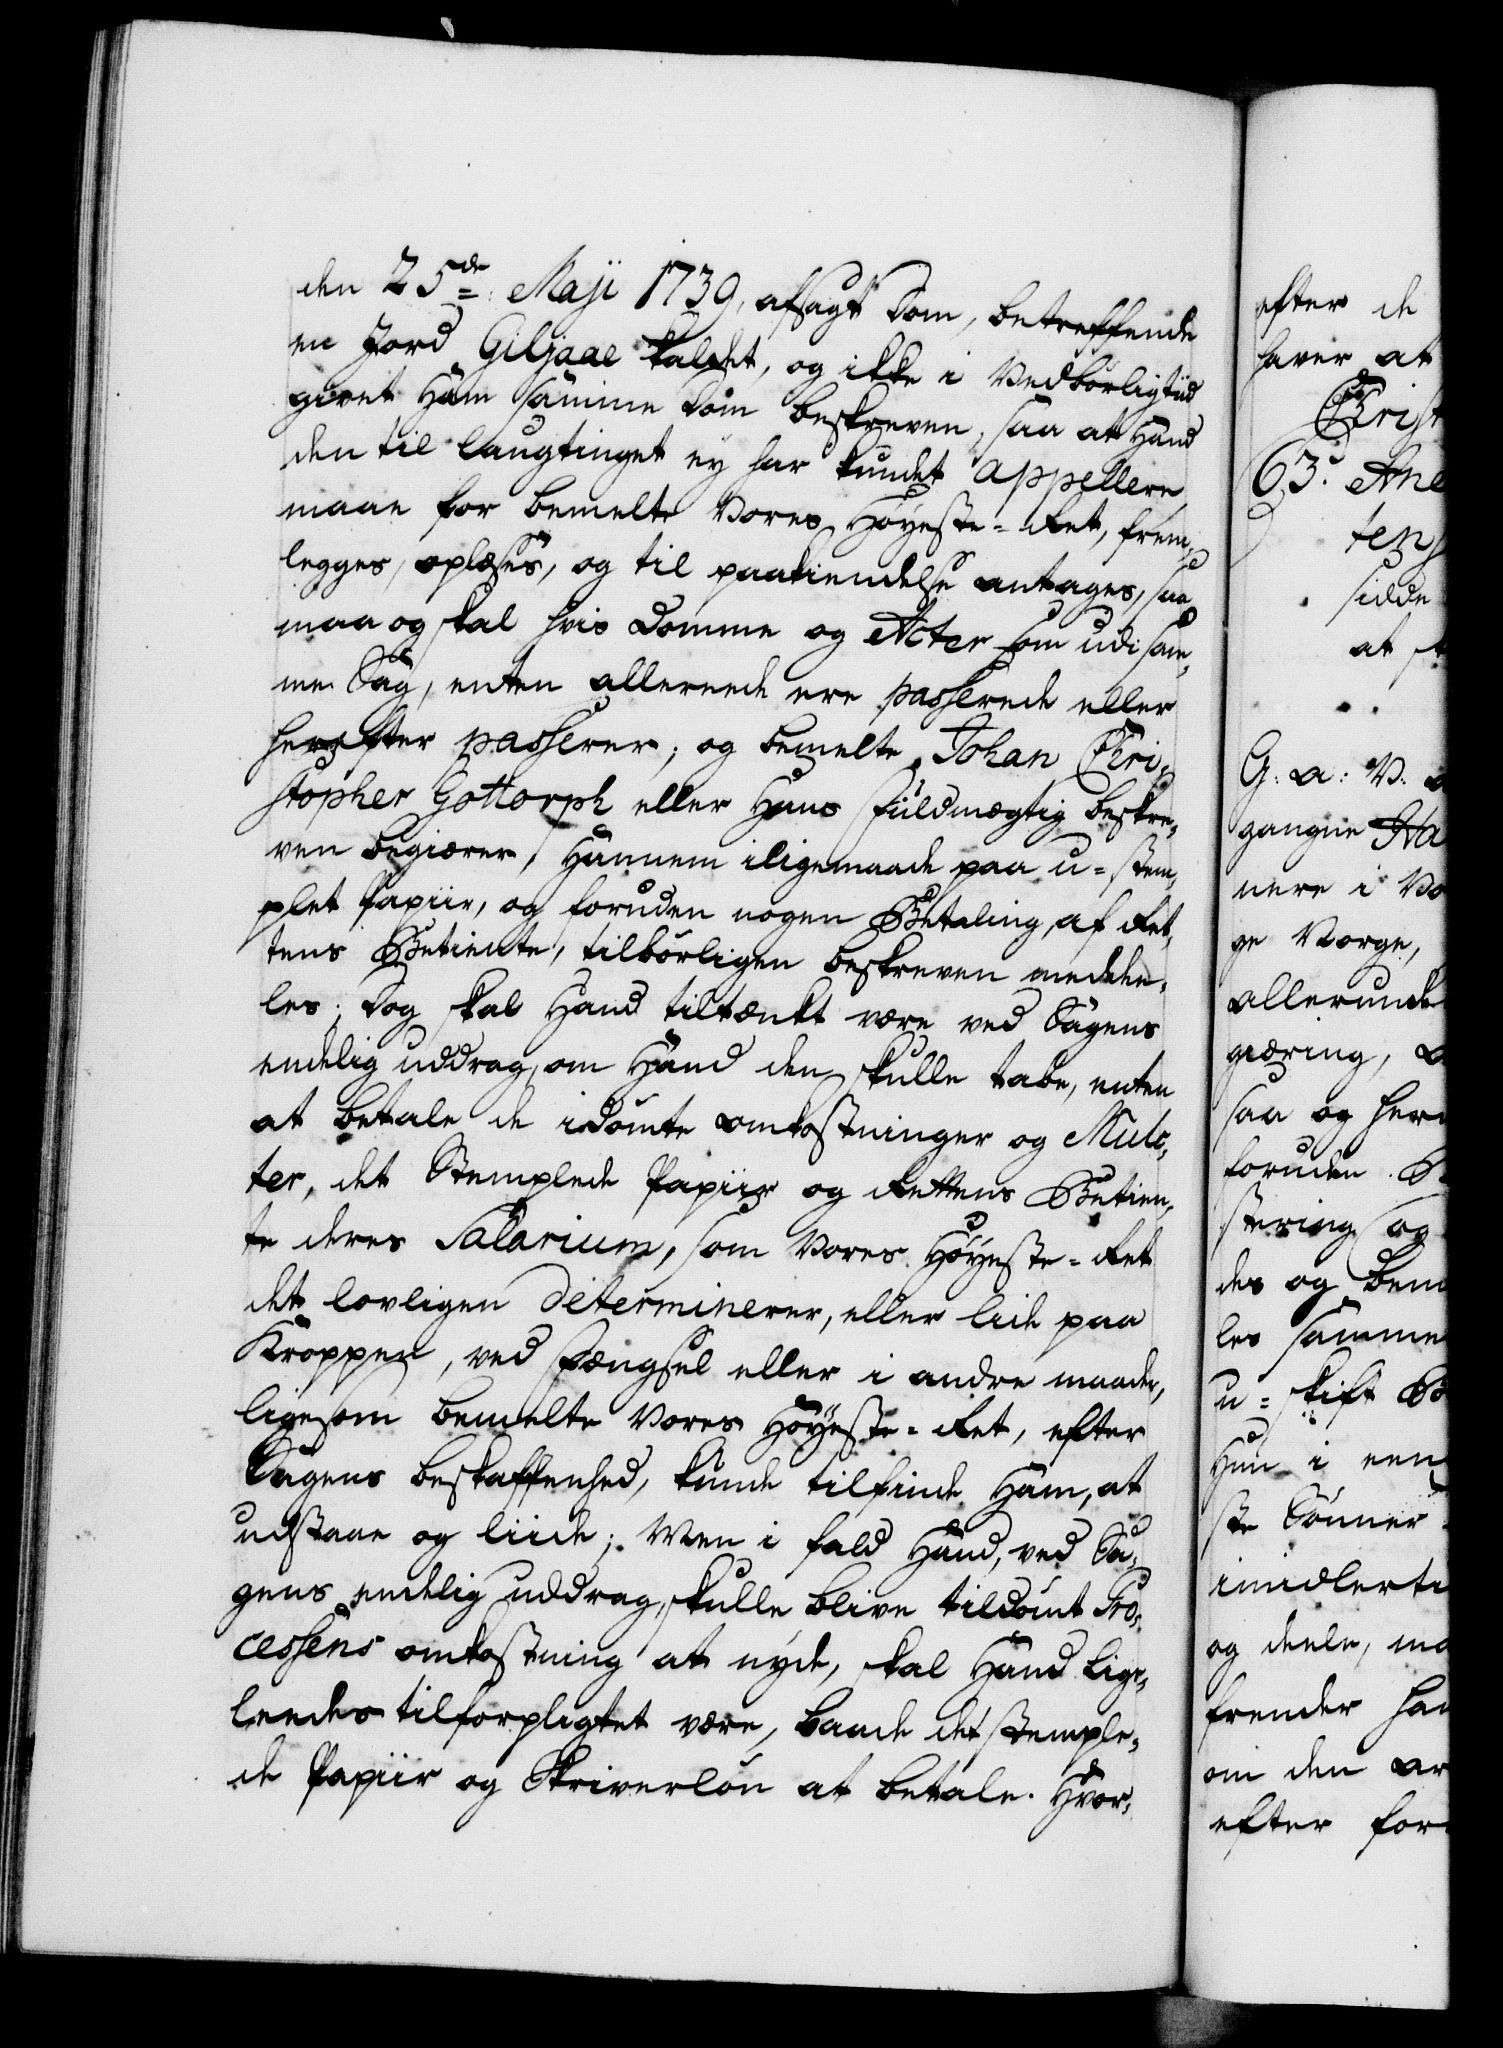 den 25de Maji 1739, afsagt Dom, betreffende
en Jord Giljaae kaldet, og ikke i Vedbörligtiid
givet Ham samme Dom beskreven, saa at Hand
den til laugtinget ey har kundet appellere
maae for bemelte Vores Höyeste-Ret, frem,
legges, oplæses, og til paakiendelse antages, saa
maa og skal hvis Domme og Acter som udi sam,
me Sag, enten allereede ere passerede eller
herefter passerer; og bemelte Johan Chri,
stopher Gottorph eller Hans Fuldmægtig beskre,
ven begiærer, Hannem iligemaade paa u-stem,
plet Papiir, og foruden nogen Betaling, af Ret,
tens Betiente, tilbörligen beskreven meddee,
les; Dog skal Hand tiltænkt være ved Sagens
endelig uddrag, om Hand den skulle tabe, enten
at betale de idömte omkostninger og Mulc,
ter, det Stemplede Papiir og Rettens Betien,
te deres Salarium, som Vores Höyeste-Ret
det lovligen determinerer, eller lide paa
Kroppen, ved Fængsel eller i andre maader,
ligesom bemelte Vores Höyeste-Ret, efter
Sagens beskaffenhed, kunde tilfinde Ham, at
udstaae og liide; Men i fald Hand, ved Sa,
gens endelig uddrag, skulle blive tildömt Pro,
cessens omkostning at nyde, skal Hand lige,
leedes tilforpligtet være, baade det stemple,
de Papiir og Skriverlön at betale. Hvor,
efter de
haver at
Christ
63. Ane
sidde
at
G: a: V.
gangne Ha
nere i Vo
ge Norge,
allerunde
giæring,
saa og her
foruden
stering og
des og bem
les samme
u-skift Bo
Hun i een
ste Sönner
imidlerti
og deele, ma
frender ha
om den ar
efter for